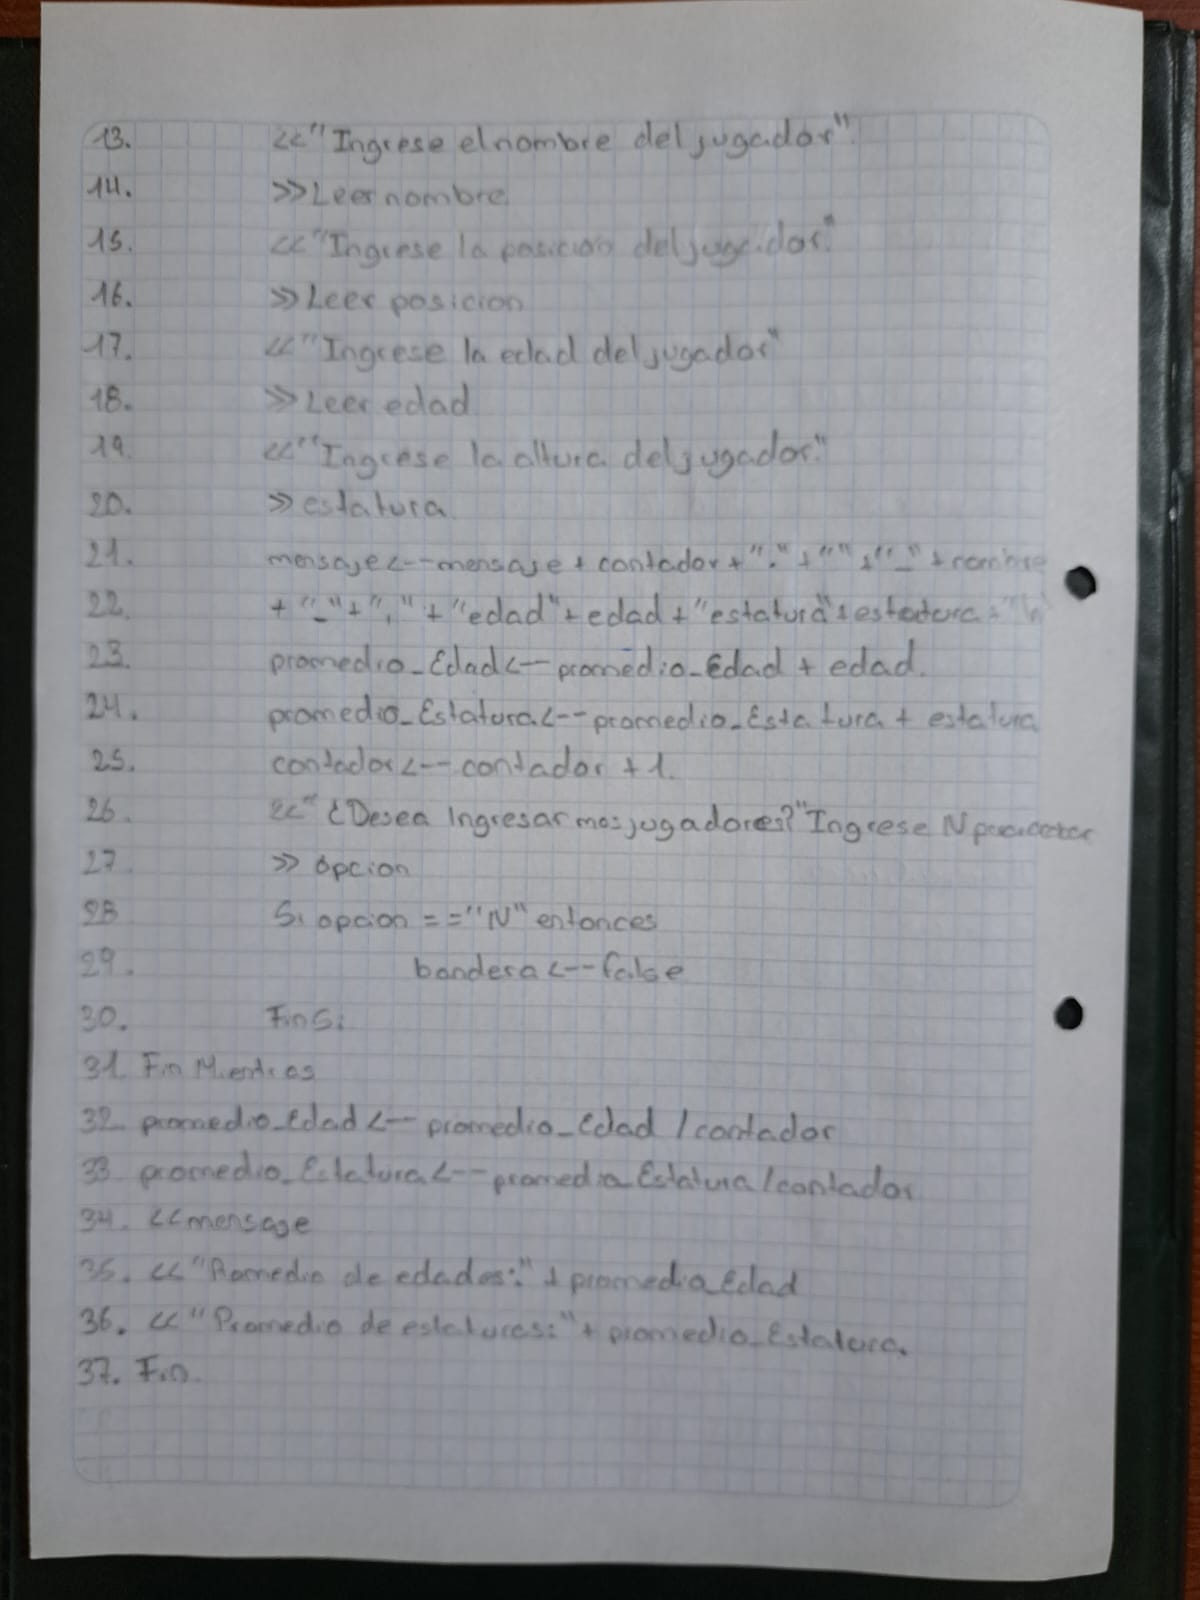 13. <<"Ingrese el nombre del jugador"
14. >>Leer nombre
15. <<"Ingrese la posicion del jugador."
16. >>Leer posicion
17. <<"Ingrese la edad del jugador"
18. >>Leer edad
19. <<"Ingrese la altura del jugador."
20. >>estatura
21. mensaje<--mensaje + contador + "." + "" + "_" + nombre
22. + "_" + "," + "edad" + edad + "estatura" + estatura +
23. promedio_Edad<-- promedio_Edad + edad.
24. promedio_Estatura<-- promedio_Estatura + estatura
25. contador<-- contador + 1.
26. <<"¿Desea Ingresar mas jugadores?" Ingrese N para
27 >> opcion
28 Si opcion == "N" entonces
29. bandera<--false
30. FinSi
31. Fin Mientras
32. promedio_Edad<-- promedio_Edad / contador
33 promedio_Estatura<-- promedio_Estatura / contador
34. <<mensaje
35. <<"Promedio de edades:" + promedio_Edad
36. <<"Promedio de estaturas:" + promedio_Estatura.
37. Fin.